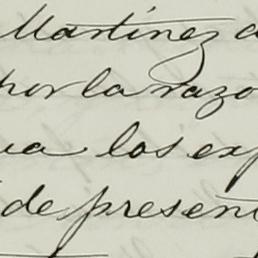 Martinez a
por la razo
ua los exp
de present